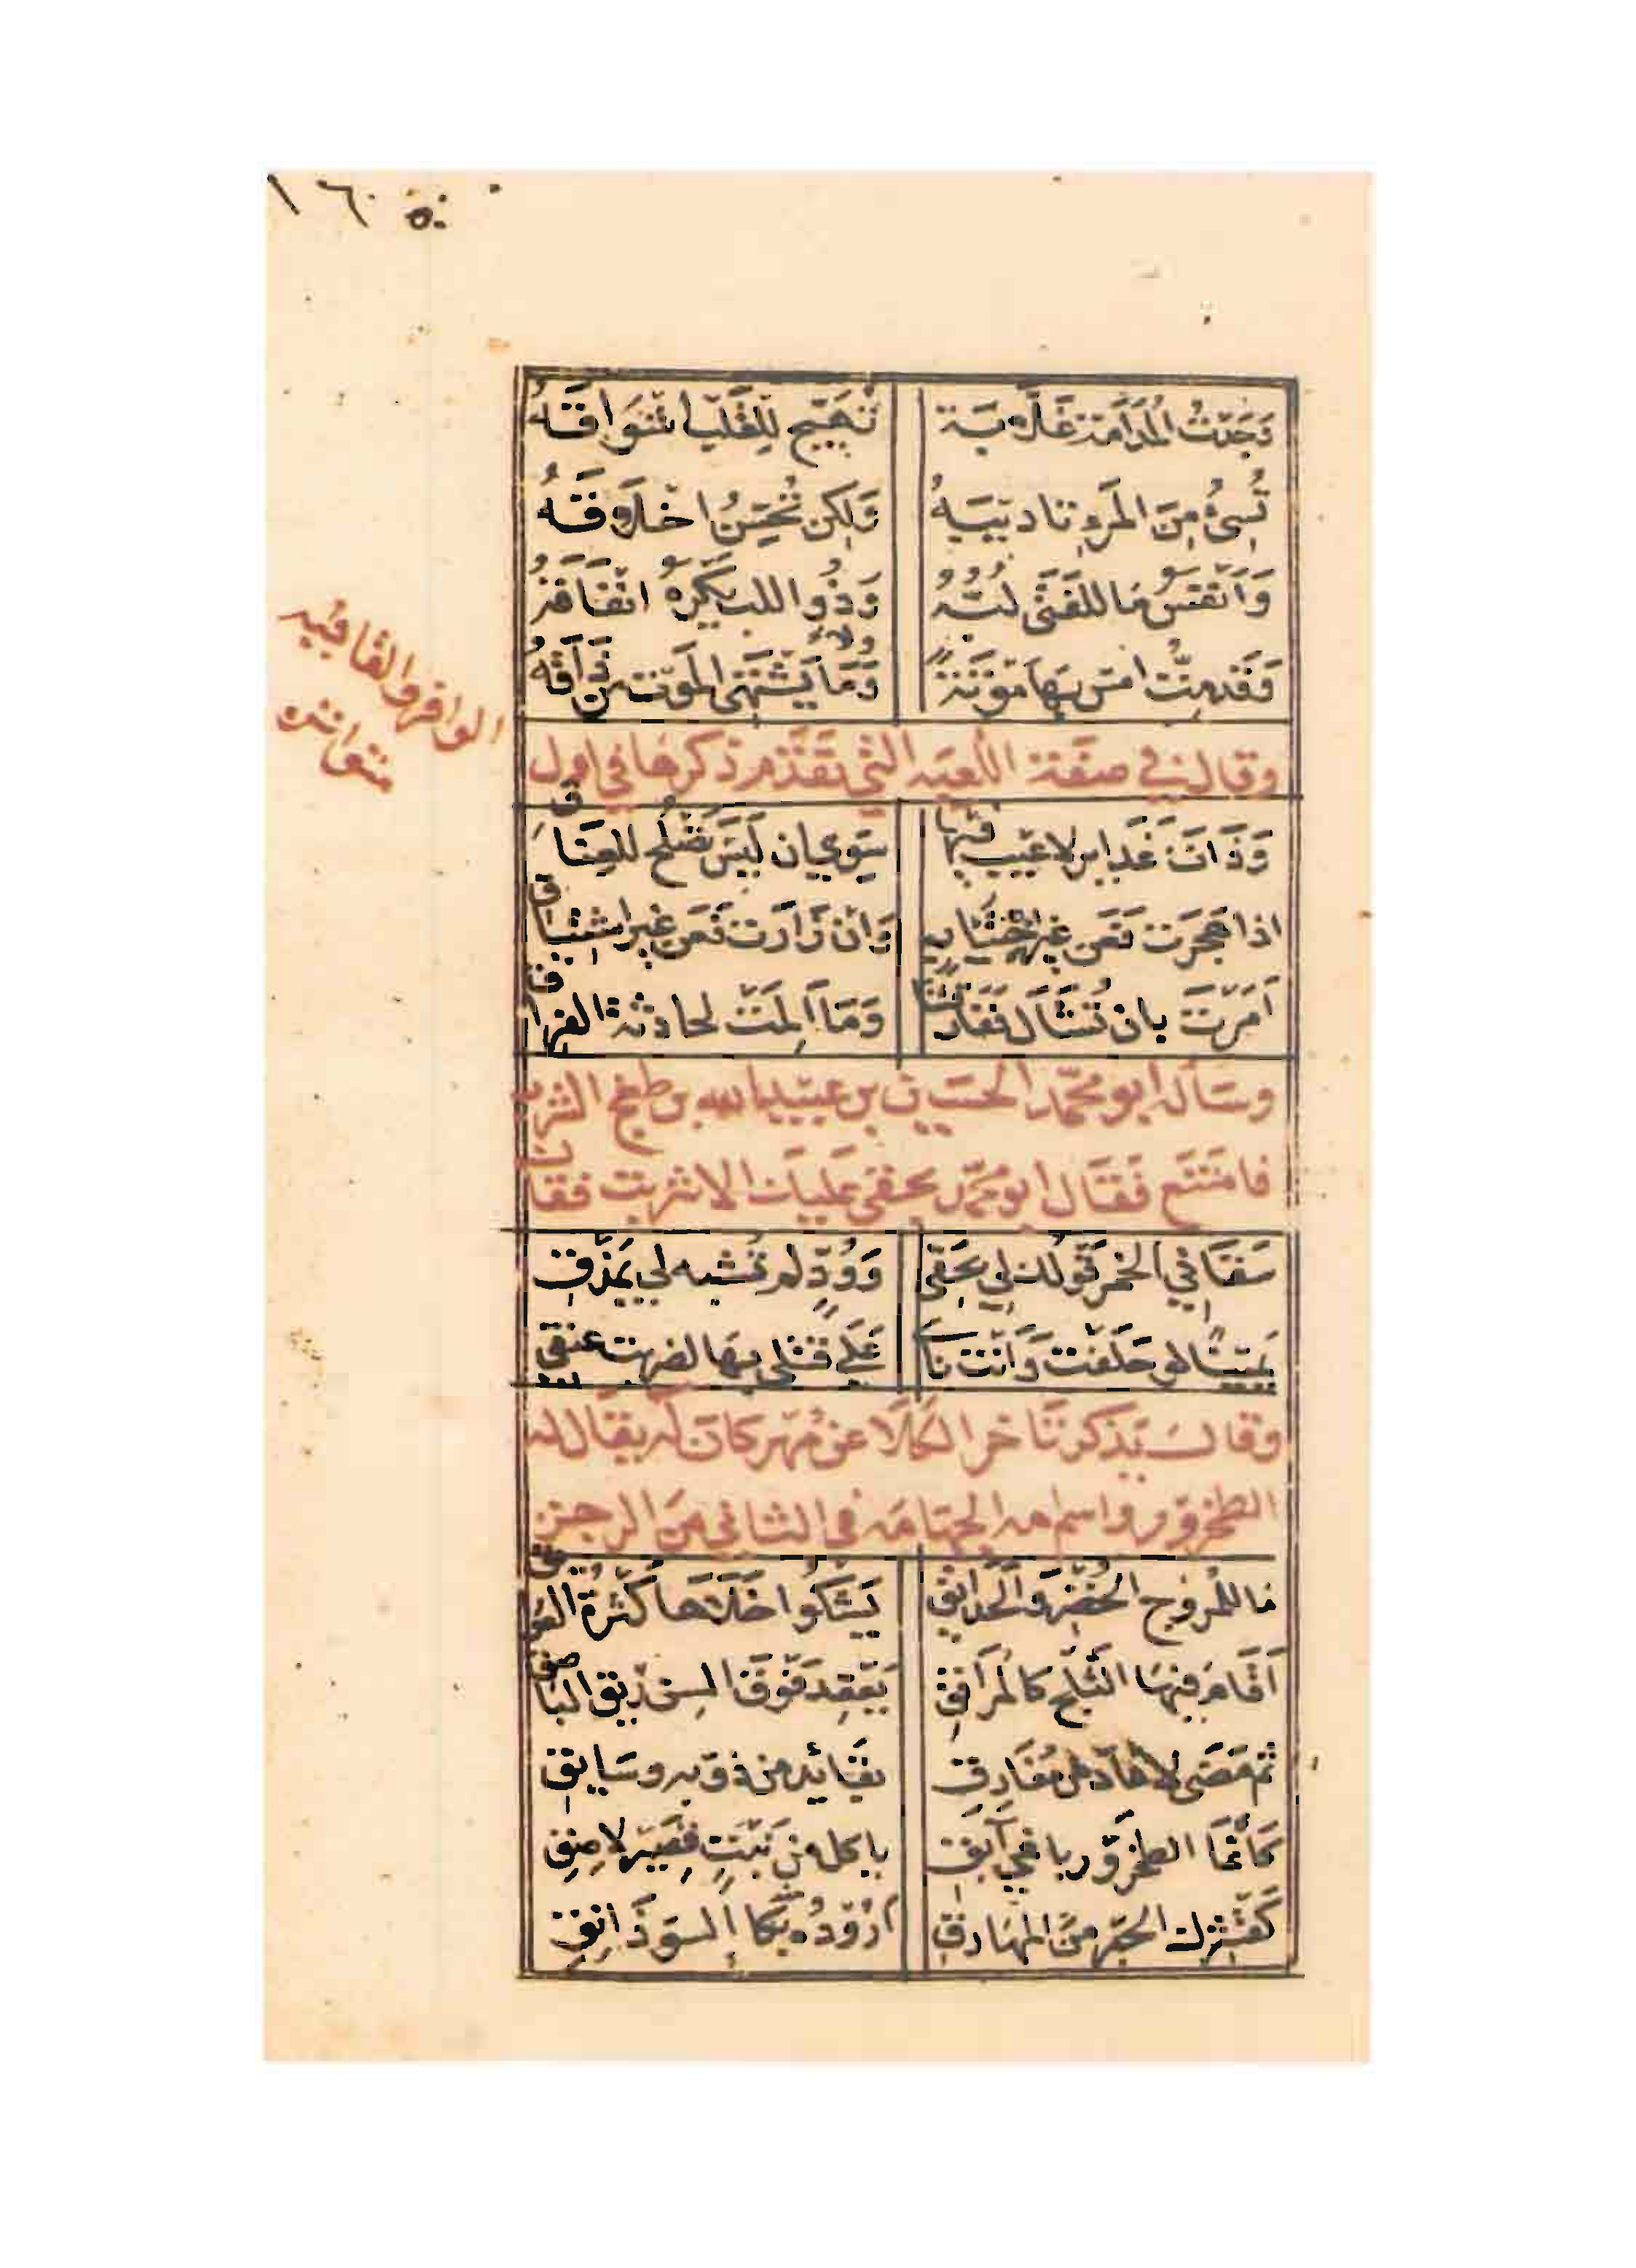 ١٦٠
وَجَدتُ المُدَامَة غَلَّابَة تُهَيِّج لِلقَلب اشوَاقَهُ
تُسِئُ مِنَ المَرءِ تاديبَهُ وَلكِن تُحَسِّنُ اخلَاقَهُ
وَاَنفَسُ مَا لِلفَتَى لُبّهُ وَذُو اللب يَكرَهُ انفَاقَهُ
وَقَد مِتُّ امس بِهَا مَوتَةً وَمَا يَشتَهِى المَوت مَن ذَاقَهُ
الوافر والقافيه
متواتره
وقال في صفة اللعبه التي تقدّم ذكرها في اول
وَذَات غَدَاير لا عَيب فيها سِوى ان لَيسَ تَصلُح للعِنَاق
اذا هَجَرَت فَعَن غيراختيارٍ وَان زَارَت فَعَن غير اشتياق
اَمَرتَ بان تُشَال فَفَارقَتنا وَمَا اَلِمَت لحادثة الفراق
وسَأله ابو محمّد الحسين بن عبيد الله بن طغج الشرب
فامتنَع فقَال ابو محمّد بحقي عليك الا شربت فقال
سَقَاني الخمر قَولك لي بحَقى وَوُدّ لم تشبه لي بمَذق
يمينًا لو حَلَفت وَانت ناءٍ عَلى قتلى بها لضربت عنقي
وقال يذكر تاخر الكلا عن مُهر كان له يقال له
الطخرور واسم امه الجهامَه في الثاني من الرجز
ما للمُروج الخُضر وَالحَدايق يَشكُوا خَلَاهَا كَثرة العوايق
اَقَامَ فيها الثَلج كالمُرَافق يَعقِد فَوق السِن ريق الباصق
ثم مَضَى لا عَاد من مُفَارِق بقَائِد من ذَوبِه وسَايق
كَأنمَا الطخرُور باغي آبق ياكل من نَبتٍ قَصير لاصِق
كَقَشرك الحبر من المهَارق اَرُودُه مِنهُ بكَا لسوذَانق